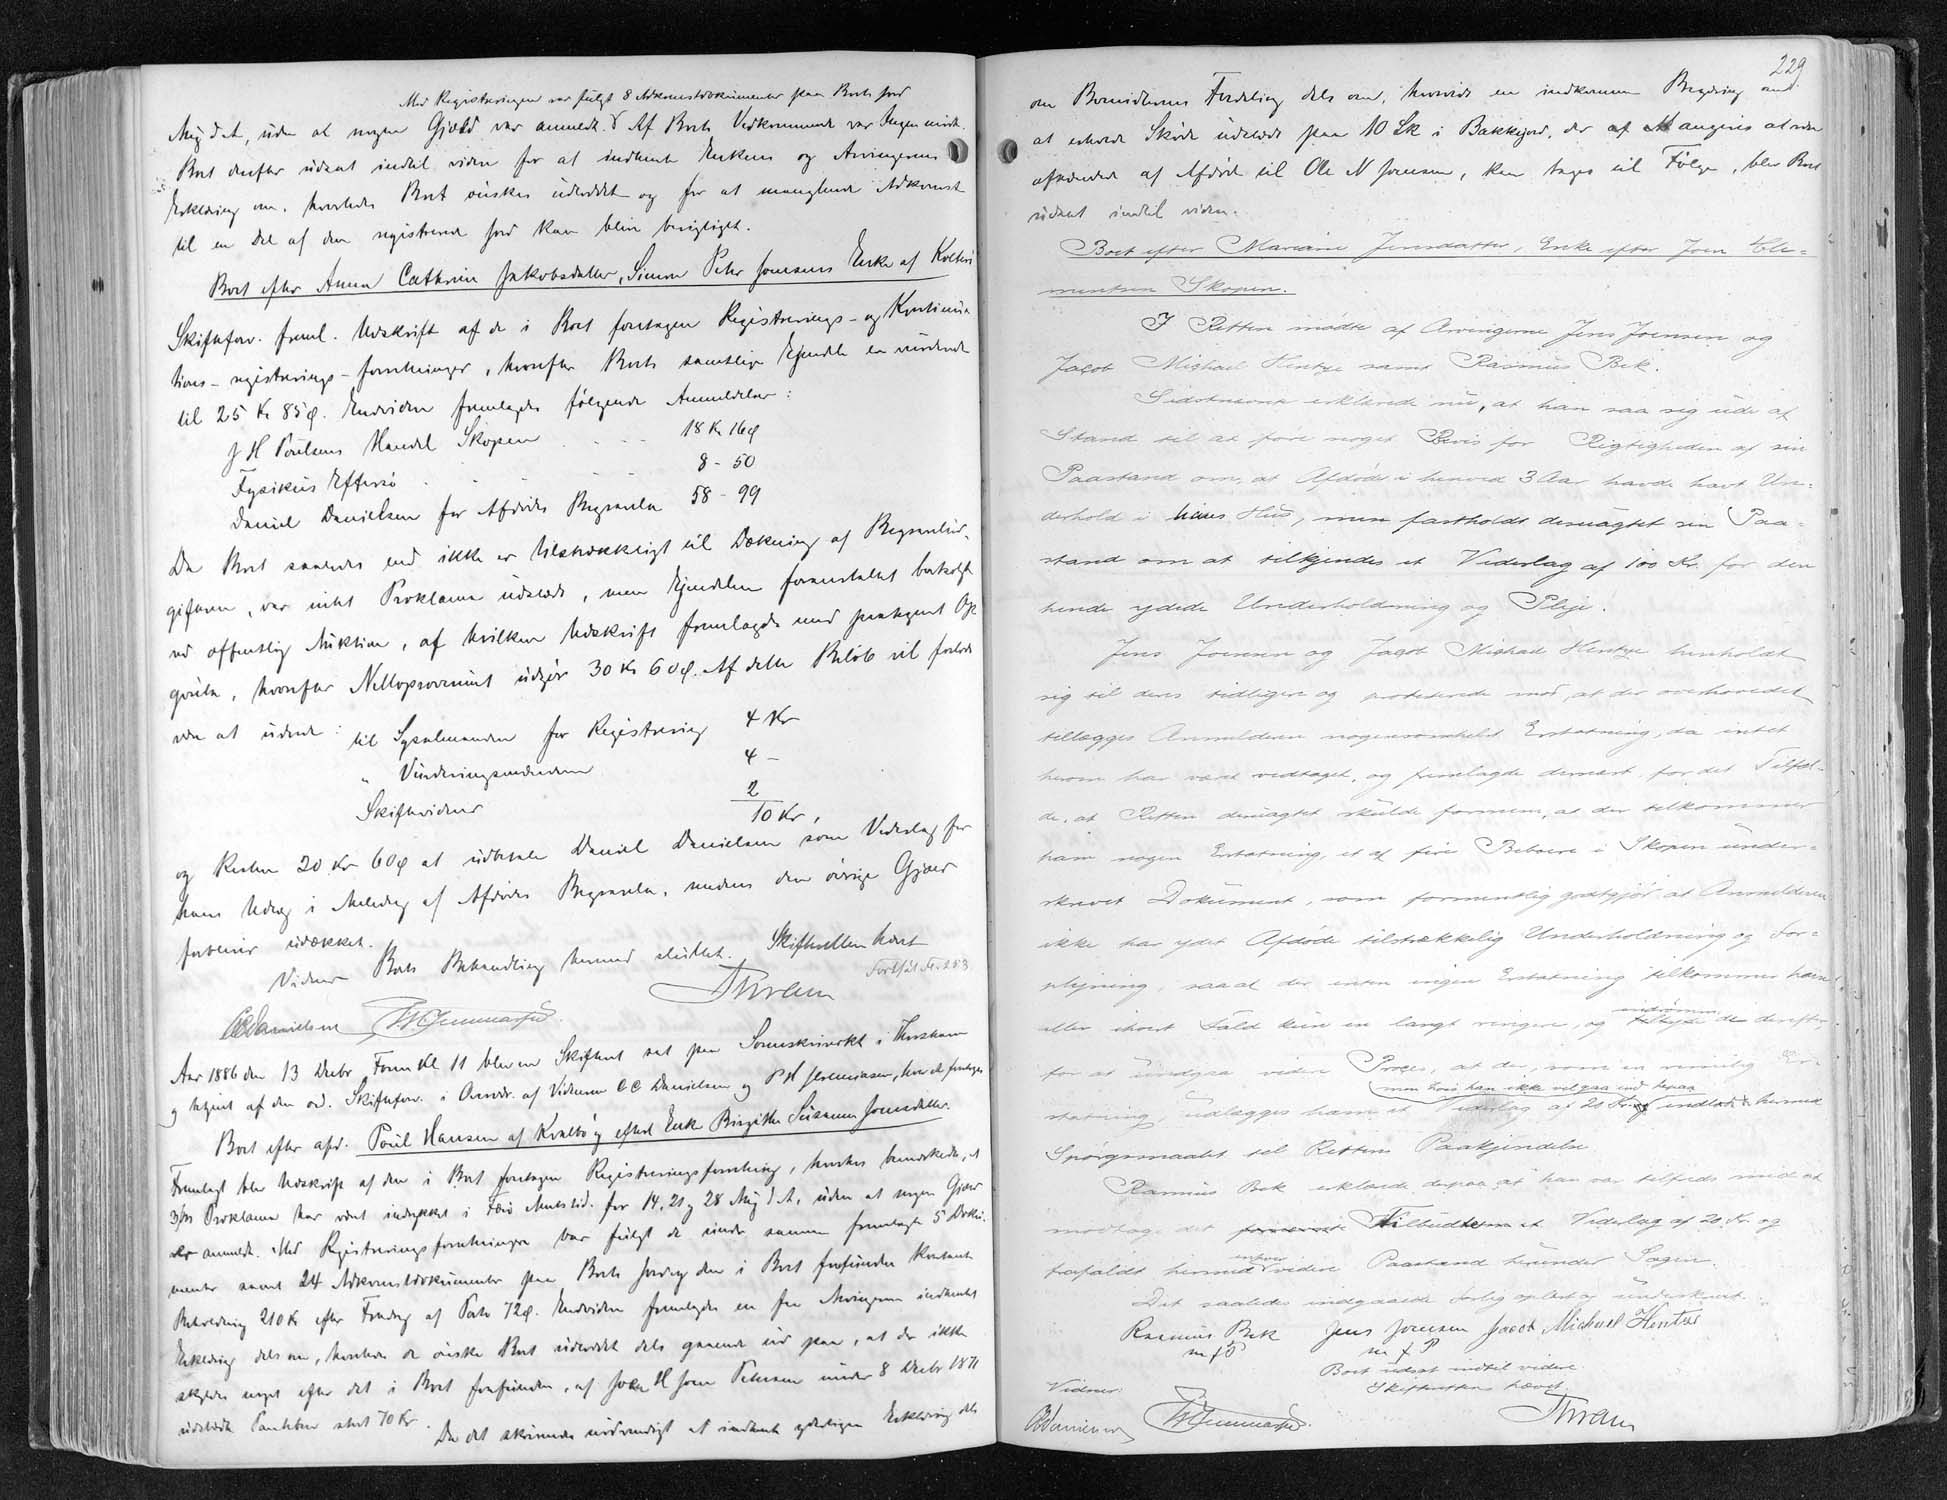 Med Registreringen var fulgt 8 Adkomstdokumenter paa Boets Jord
Maj d. A., uden at nogen Gjæld var anmeldt. Af Boets Vedkommende var Ingen mødt.
Boet derefter udsat indtil videre for at indhente Enkens og Arvingernes
Erklæring om, hvorledes Boet ønskes udloddet og for at manglende Adkomst
til en Del af den registrerede Jord kan blive berigtiget.
Boet efter Anna Cathrine Jakobsdatter, Simon Peter Joensens Enke af
Skifteforv. freml. Udskrift af de i Boet foretagne Registrerings- og Kontinua-
tions-registrerings-forretninger, hvorefter Boets samtlige Ejendele er vurderede
til 25 Kr 85 ø. Endvidere fremlagdes følgende Anmeldelser:
J H Poulsens Handel Skopen 18 Kr 16 ø
Fysikus Effersø 8 - 50
Daniel Danielsen for Afdødes Begravelse 58 - 99
Da Boet saaledes end ikke er tilstrækkeligt til Dækning af Begravelsesud-
gifterne, var intet Proklama udstedt, men Ejendelene foranstaltet bortsolgte
ved offentlig Auktion, af hvilken Udskrift fremlagdes med paategnet Op-
gørelse, hvorefter Nettoprovenuet udgør 30 Kr 60 ø. Af dette Beløb vil forlods
være at udrede: til Sysselmanden for Registrering 4 Kr
" Vurderingsmændene 4 -
Skiftevidner 2
10 Kr,
og Resten 20 Kr 60 ø at udbetale Daniel Danielsen som Vederlag for
hans Udlæg i Anledning af Afdødes Begravelse, medens den øvrige Gjæld
forbliver udækket.
Boets Behandling hermed sluttet. Skifteretten hævet
Vidner Fortsat Fol. 253
Thram
CC Danielsen
Aar 1886 den 13 Decbr Form Kl 11 blev en Skifteret sat paa Sorenskriverkt. i Thorshavn
og betjent af den ord. Skifteforv. i Overvær. af Vidnerne C C Danielsen og P H Jeremiasen, hvor da foretoges
Boet efter afd. Poul Hansen af Kvalbø og efterl. Enke Birgithe Susanne Joensdatter.
Fremlagt blev Udskrift af den i Boet foretagne Registreringsforretning, hvorhos bemærkedes, at
Proklama har været indrykket i Færø Amtstid. for 14, 21 og 28 Maj d. A., uden at nogen Gjæld
er anmeldt. Med Registreringsforretningen var fulgt de under samme fremlagte 5 Doku-
menter samt 24 Adkomstdokumenter paa Boets Jord og den i Boet forefundne Kontante
Beholdning 210 Kr efter Fradrag af Porto 72 ø. Endvidere fremlagdes en fra Arvingerne indhentet
Erklæring dels om, hvorledes de ønske Boet udloddet dels gaaende ud paa, at der ikke
skyldes noget efter det i Boet forefundne, af Joen H Joen Petersen under 8 Decbr 1871
udstedte Pantebrev stort 70 Kr. Da det skønnedes nødvendigt at indhente yderligere Erklæring dels
229
om Boemidlernes Fordeling dels om, hvorvidt en indkommen Begæring om
at erholde Skøde udstedt paa 10 Sk i Bakkejord, der af angives at være
afhændet af Afdøde til Ole N Joensen, kan tages til Følge, blev Boet
udsat indtil videre.
Boet efter Mariane Jensdatter, Enke efter Joen Cle-
mentsen Skopen.
I Retten mødte af Arvingerne Jens Joensen og
Jacob Michael Hentze samt Rasmus Bek.
Sidstnævnte erklærede nu, at han saa sig ude af
Stand til at føre noget Bevis for Rigtigheden af sin
Paastand om, at Afdøde i henved 3 Aar havde havt Un-
derhold i hans Hus, men fastholdt desuagtet sin Paa-
stand om at tilkjendes et Vederlag af 100 Kr. for den
hende ydede Underholdning og Pleje.
Jens Joensen og Jacob Michael Hentze henholdt
sig til deres tidligere og protesterede mod, at der overhovedet
tillægges Anmelderen nogensomhelst Erstatning, da intet
herom har været vedtaget, og fremlagde dernæst, for det Tilfæl-
de, at Retten desuagtet skulde formene, at der tilkommer
ham nogen Erstatning, et af fire Beboere i Skopen under-
skrevet Dokument, som formentlig godtgjør at Anmelderen
ikke har ydet Afdøde tilstrækkelig Underholdning og For-
plejning, saa at der enten ingen Erstatning tilkommer ham
eller i hvert Fald kun en langt ringere, og indrømme de derefter
for at undgaa videre Proces, at der, som en rimelig Er-
men hvis han ikke vil gaa ind herpaa
statning, udlægges ham et Vederlag af 20 Kr. indlade de hermed
Spørgsmaalet til Rettens Paakjendelse.
Rasmus Bek erklærede derpaa, at han var tilfreds med at
modtage det Tilbudte et Vederlag af 20 Kr. og
enhver
frafaldt hermed videre Paastand herunder Sagen.
Det saaledes indgaaede Forlig oplæst og underskrevet.
Rasmus Bek Jens Joensen Jacob Michael Hentze
m f P m f P
Boet udsat indtil videre.
Skifteretten hævet.
Vidner:
CC Danielsen Thram